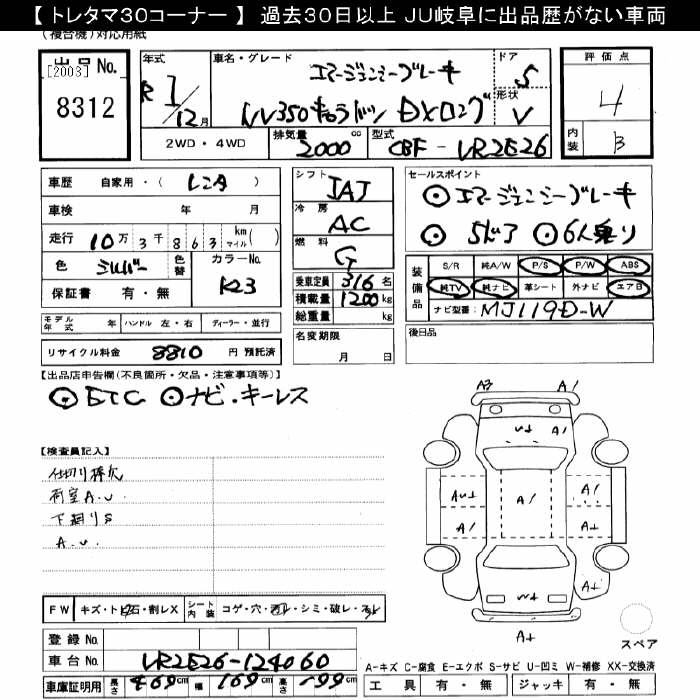 【 トレタマ30コーナー 】 過去30日以上 JU岐阜に出品歴がない車両
(複合機)対応用紙
出品 No.
[2003]
8312
年式
R1/12月
車名・グレード
エマージェンシーブレーキ
NV350キャラバン DXロング
ドア
5
形状
V
評価点
4
内装
B
2WD・4WD
排気量
2000 cc
型式
CBF-VR2E26
車歴 自家用・( レンタ )
車検 年 月
走行 10万3千863 km マイル( )
色 シルバー 色替 カラーNo. K23
保証書 有・無
シフト
IAT
冷房
AC
燃料
G
乗車定員 3/6名
積載量 1200kg
総重量 kg
セールスポイント
◎エマージェンシーブレーキ
◎5ドア ◎6人乗り
装備品
S/R 純A/W P/S P/W ABS
純TV 純ナビ 革シート 外ナビ エアB
ナビ型番: MJ119D-W
モデル年式 年 ハンドル 左・右 ディーラー・並行
リサイクル料金 8810 円 預託済
名変期限
月 日
後日品
【出品店申告欄(不良箇所・欠品・注意事項等)】
◎ETC ◎ナビ・キーレス
【検査員記入】
仕切り棒欠
荷室A.U.
下廻りS
A.U.
A3 A1
U1 A1
AU1 A1 A1
A1 A1
A1
W1
A1
スペア
FW キズ・ト石・割レX シート内装 コゲ・穴・・シミ・破レ・
登録 No.
車台 No. VR2E26-124060
車庫証明用 長さ 469cm 幅 169cm 高さ 199cm
A-キズ C-腐食 E-エクボ S-サビ U-凹ミ W-補修 XX-交換済
工具 有・無 ジャッキ 有・無